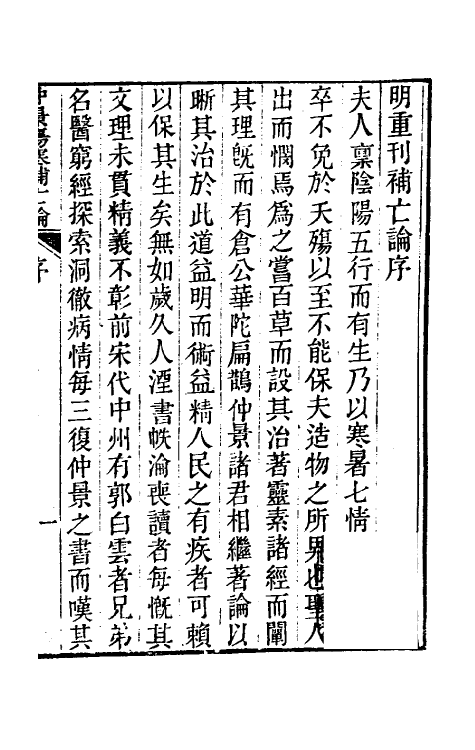 明重刊補亡論序
夫人稟陰陽五行而有生乃以寒暑七情
卒不免於夭殤以至不能保夫造物之所畀也聖人
出而憫焉為之嘗百草而設其治著靈素諸經而闡
其理旣而有倉公華陀扁鵲仲景諸君相繼著論以
晰其治於此道益明而術益精人民之有疾者可賴
以保其生矣無如歲久人湮書帙淪喪讀者每慨其
文理未貫精義不彰前宋代中州有郭白雲者兄弟
名醫窮經探索洞徹病情每三復仲景之書而嘆其
仲景傷寒補亡論 序 一